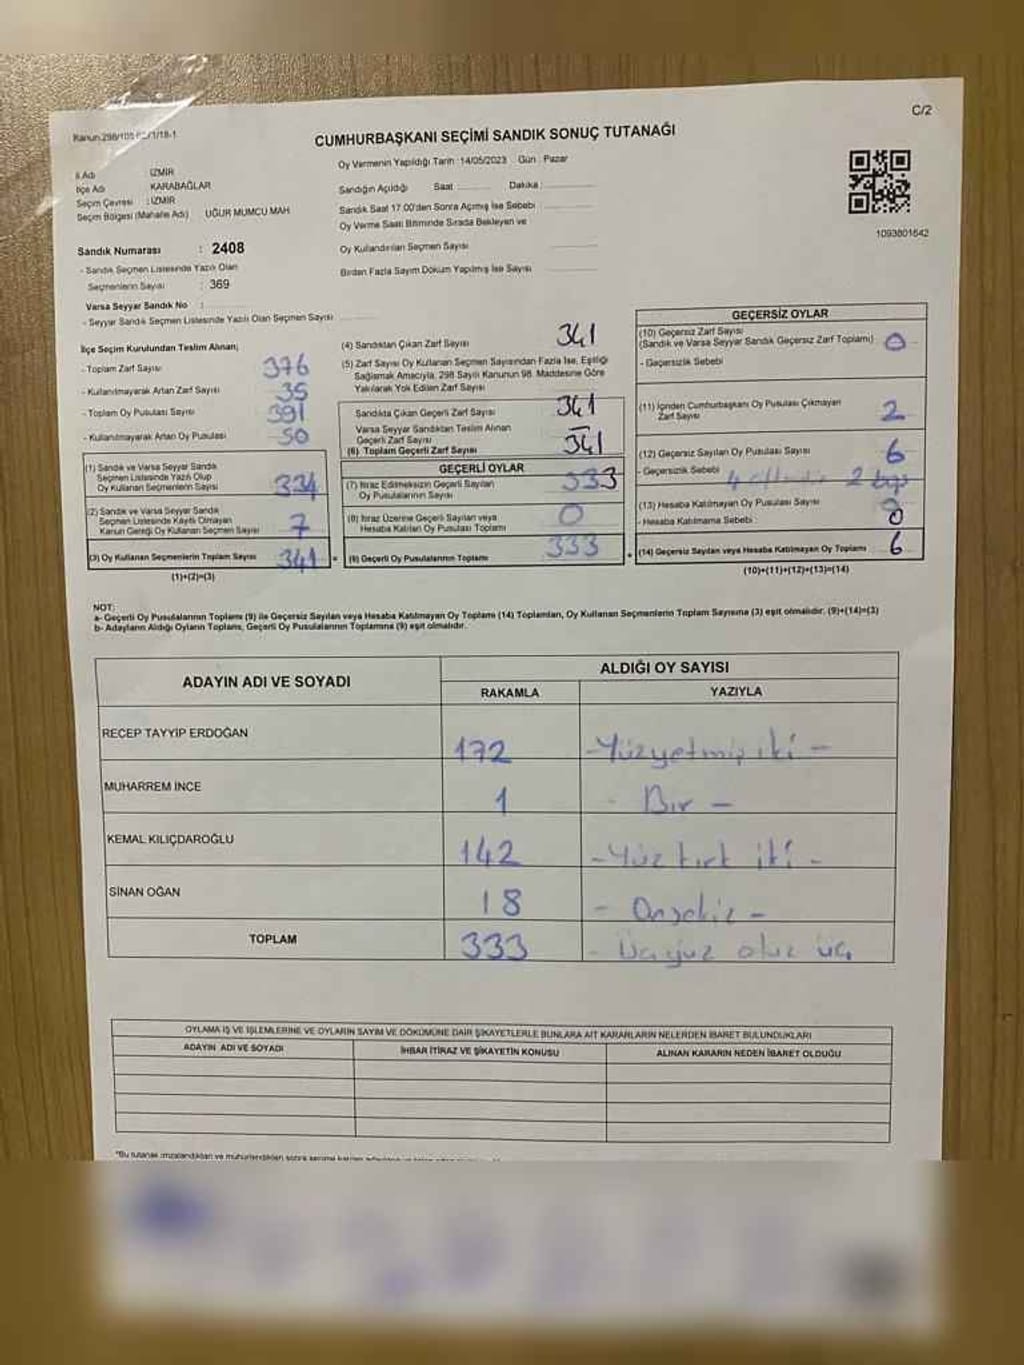 C/2
Kanun:298/105
CUMHURBAŞKANI SEÇİMİ SANDIK SONUÇ TUTANAĞI
Oy Vermenin Yapıldığı Tarih :14/05/2023 Gün : Pazar
İl Adı : İZMİR
İlçe Adı : KARABAĞLAR
Seçim Çevresi : İZMİR
Seçim Bölgesi (Mahalle Adı) UĞUR MUMCU MAH
Sandık Numarası : 2408
- Sandık Seçmen Listesinde Yazılı Olan
Seçmenlerin Sayısı : 369
Varsa Seyyar Sandık No :
- Seyyar Sandık Seçmen Listesinde Yazılı Olan Seçmen Sayısı
Sandığın Açıldığı Saat Dakika :
Sandık Saat 17.00'den Sonra Açılmış İse Sebebi
Oy Verme Saati Bitiminde Sırada Bekleyen ve
Oy Kullandırılan Seçmen Sayısı
Birden Fazla Sayım Döküm Yapılmış İse Sayısı
1093801642
İlçe Seçim Kurulundan Teslim Alınan;
- Toplam Zarf Sayısı 376
- Kullanılmayarak Artan Zarf Sayısı 35
- Toplam Oy Pusulası Sayısı 391
- Kullanılmayarak Artan Oy Pusulası 50
(1) Sandık ve Varsa Seyyar Sandık
Seçmen Listesinde Yazılı Olup
Oy Kullanan Seçmenlerin Sayısı 334
(2) Sandık ve Varsa Seyyar Sandık
Seçmen Listesinde Kayıtlı Olmayan
Kanun Gereği Oy Kullanan Seçmen Sayısı 7
(3) Oy Kullanan Seçmenlerin Toplam Sayısı 341 =
(1)+(2)=(3)
(4) Sandıktan Çıkan Zarf Sayısı 341
(5) Zarf Sayısı Oy Kullanan Seçmen Sayısından Fazla İse, Eşitliği
Sağlamak Amacıyla, 298 Sayılı Kanunun 98. Maddesine Göre
Yakılarak Yok Edilen Zarf Sayısı
Sandıkta Çıkan Geçerli Zarf Sayısı 341
Varsa Seyyar Sandıktan Teslim Alınan
Geçerli Zarf Sayısı –
(6) Toplam Geçerli Zarf Sayısı 341
GEÇERLİ OYLAR
(7) İtiraz Edilmeksizin Geçerli Sayılan
Oy Pusulalarının Sayısı 333
(8) İtiraz Üzerine Geçerli Sayılan veya
Hesaba Katılan Oy Pusulası Toplamı 0
(9) Geçerli Oy Pusulalarının Toplamı 333 +
GEÇERSİZ OYLAR
(10) Geçersiz Zarf Sayısı
(Sandık ve Varsa Seyyar Sandık Geçersiz Zarf Toplamı) 0
- Geçersizlik Sebebi
(11) İçinden Cumhurbaşkanı Oy Pusulası Çıkmayan
Zarf Sayısı 2
(12) Geçersiz Sayılan Oy Pusulası Sayısı 6
- Geçersizlik Sebebi
(13) Hesaba Katılmayan Oy Pusulası Sayısı 0
- Hesaba Katılmama Sebebi :
(14) Geçersiz Sayılan veya Hesaba Katılmayan Oy Toplamı 6
(10)+(11)+(12)+(13)=(14)
NOT:
a- Geçerli Oy Pusulalarının Toplamı (9) ile Geçersiz Sayılan veya Hesaba Katılmayan Oy Toplamı (14) Toplamları, Oy Kullanan Seçmenlerin Toplam Sayısına (3) eşit olmalıdır. (9)+(14)=(3)
b- Adayların Aldığı Oyların Toplamı, Geçerli Oy Pusulalarının Toplamına (9) eşit olmalıdır.
ADAYIN ADI VE SOYADI
ALDIĞI OY SAYISI
RAKAMLA YAZIYLA
RECEP TAYYİP ERDOĞAN 172 - Yüzyetmiş iki -
MUHARREM İNCE 1 - Bir -
KEMAL KILIÇDAROĞLU 142 - Yüz kırk iki -
SİNAN OĞAN 18 - Onsekiz -
TOPLAM 333 - Üçyüz otuz üç
OYLAMA İŞ VE İŞLEMLERİNE VE OYLARIN SAYIM VE DÖKÜMÜNE DAİR ŞİKAYETLERLE BUNLARA AİT KARARLARIN NELERDEN İBARET BULUNDUKLARI
ADAYIN ADI VE SOYADI İHBAR İTİRAZ VE ŞİKAYETİN KONUSU ALINAN KARARIN NEDEN İBARET OLDUĞU
*Bu tutanak imzalandıktan ve mühürlendikten sonra